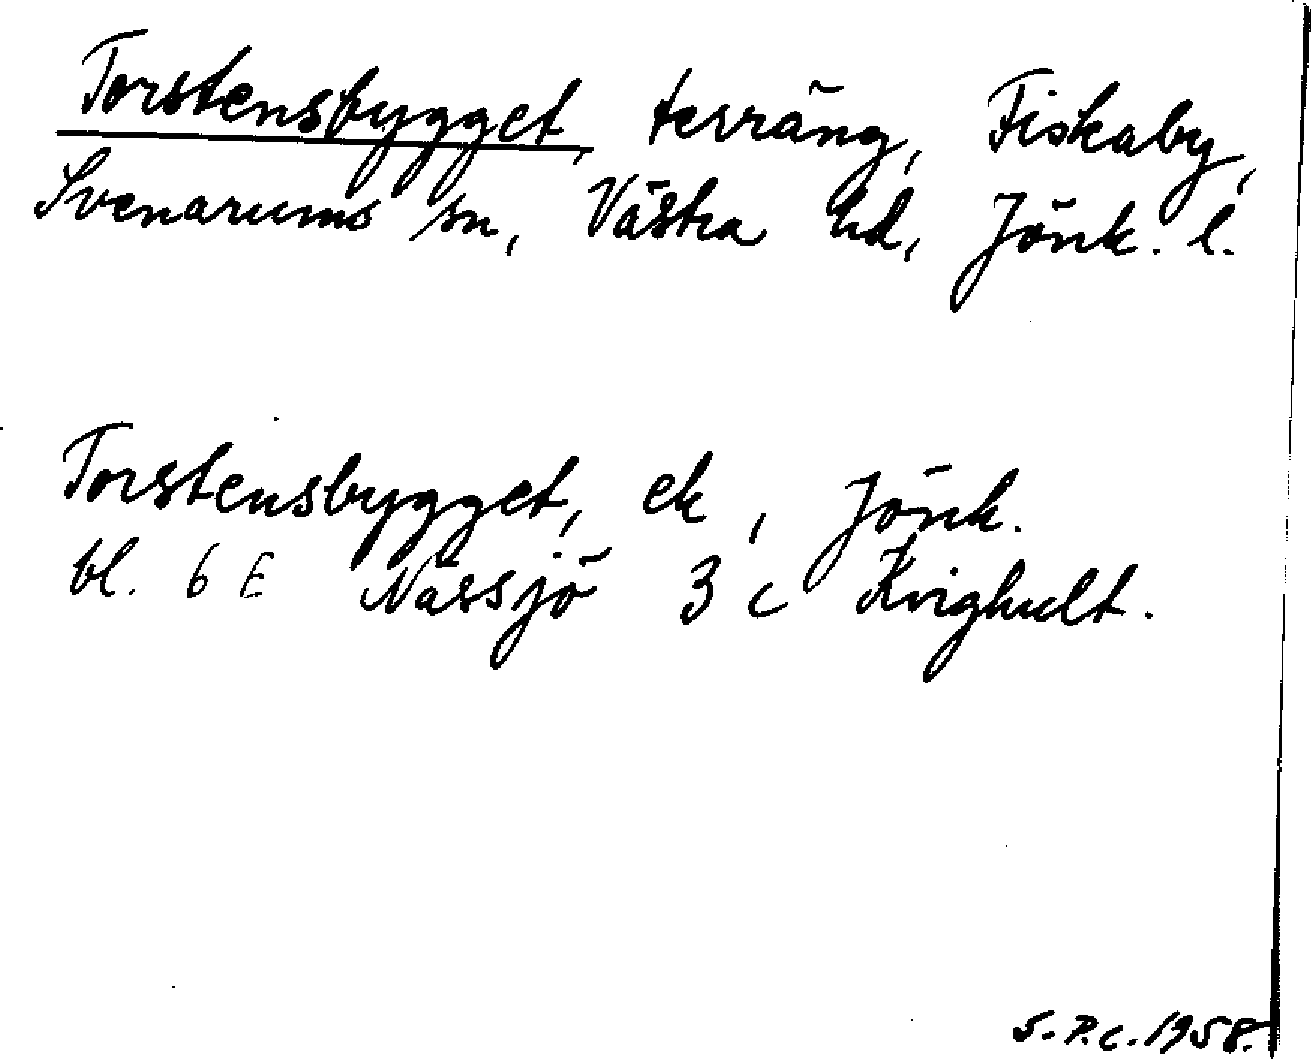 Torstensbygget, terräng, Fiskaby,
Svenarums sn, Västra hd, Jönk. l.
Torstensbygget, ek, Jönk.
bl. 6 E Nässjö 3 c Kvighult.
S.P.C. 1958.